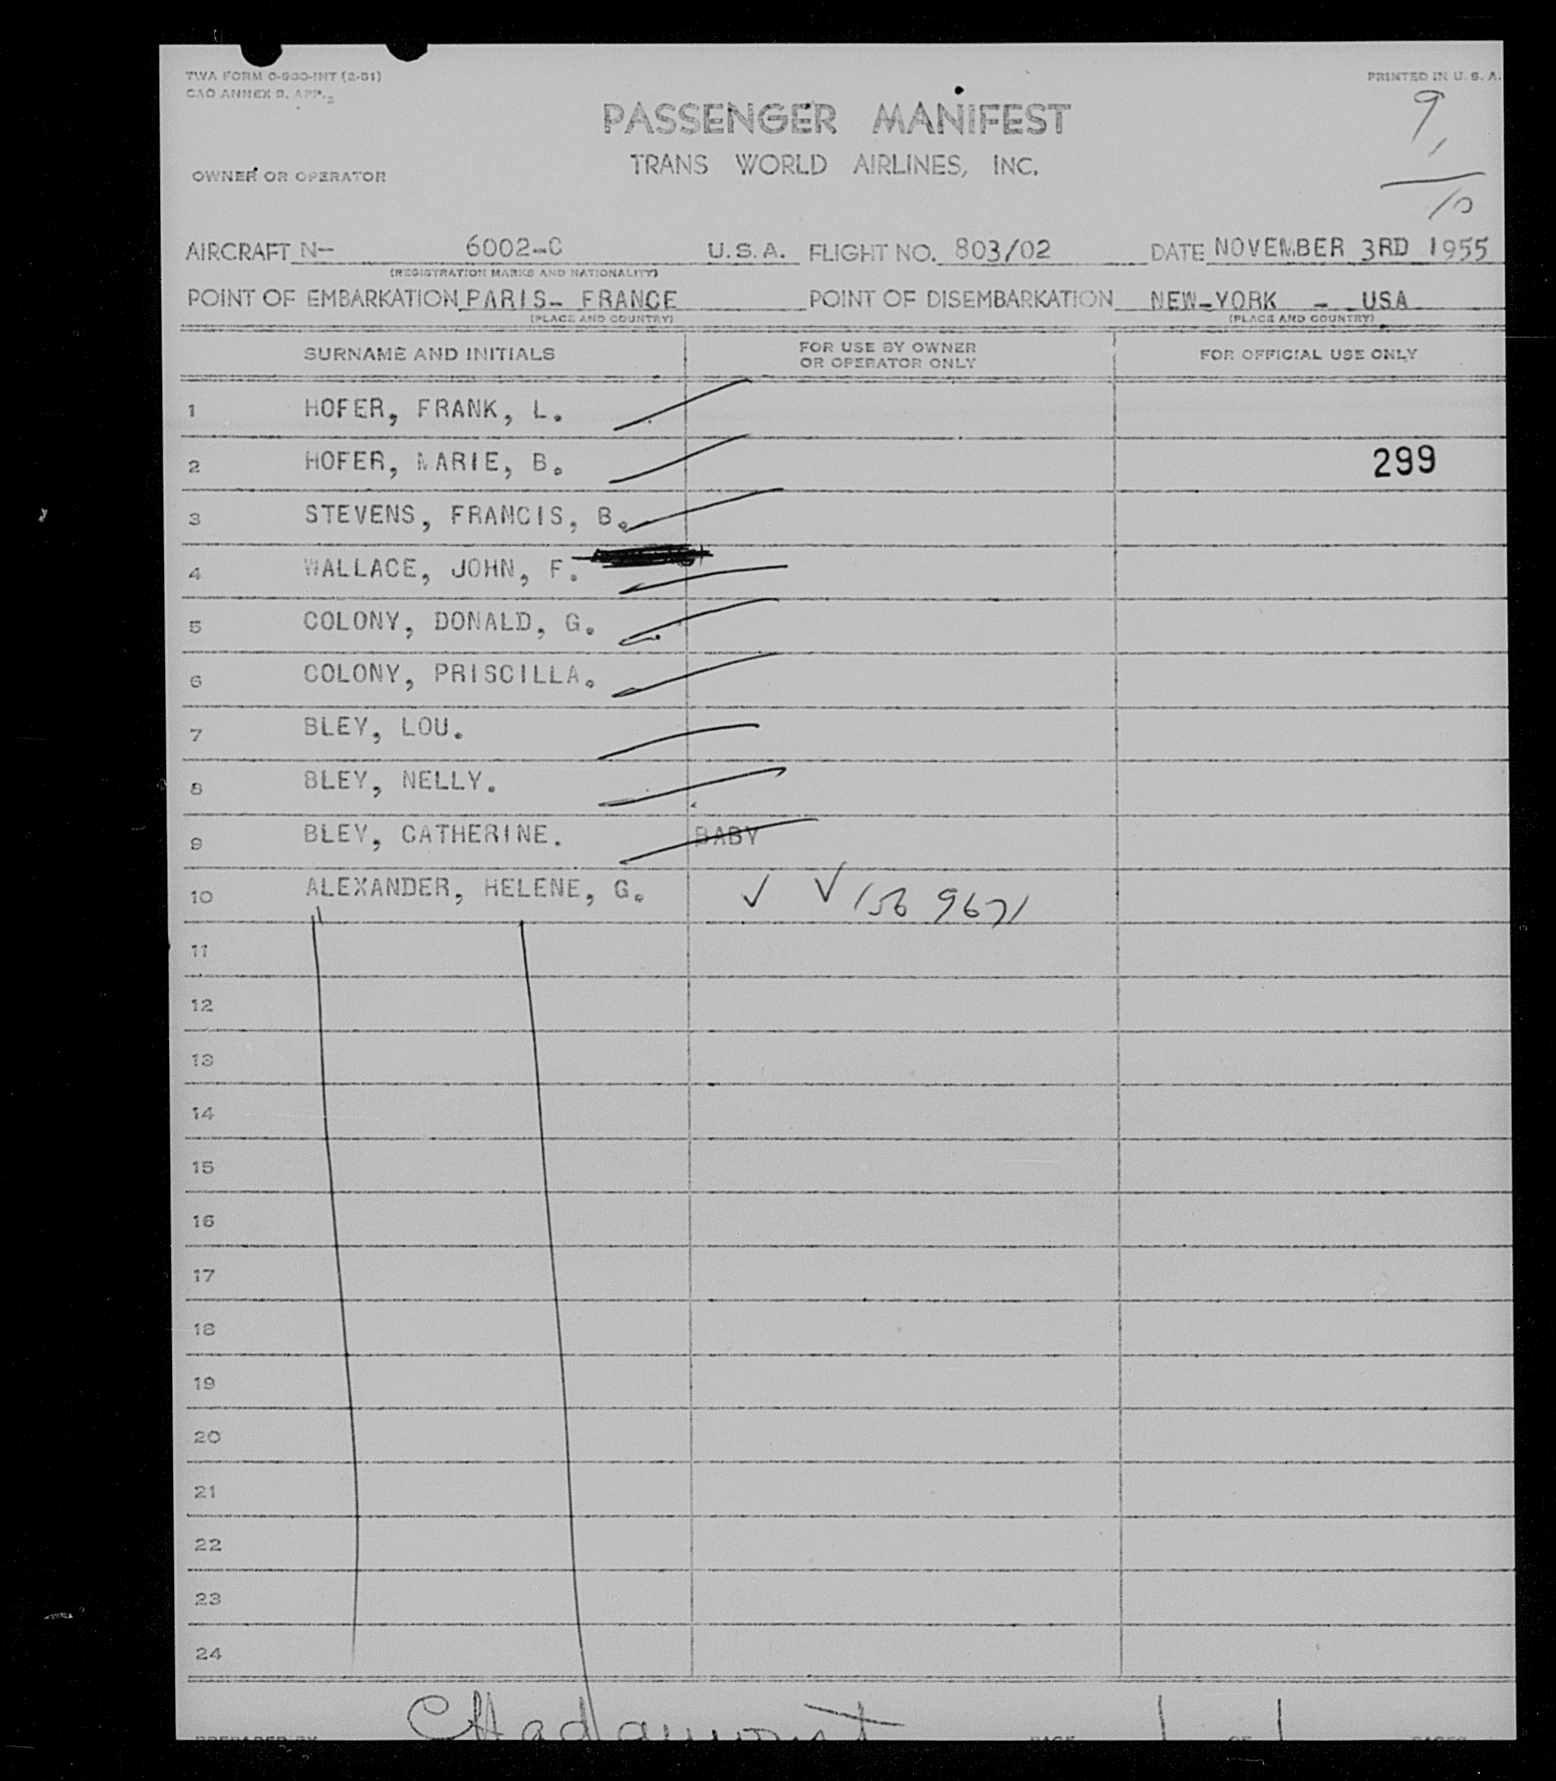 TWA FORM O-930-INT (2-51)
CAO ANNEX 9. APP. 2
PRINTED IN U. S. A.
9
10
PASSENGER MANIFEST
TRANS WORLD AIRLINES, INC.
OWNER OR OPERATOR
AIRCRAFT N- 6002-C U.S.A. FLIGHT NO. 803/02 DATE NOVEMBER 3RD 1955
(REGISTRATION MARKS AND NATIONALITY)
POINT OF EMBARKATION PARIS- FRANCE POINT OF DISEMBARKATION NEW-YORK - USA
(PLACE AND COUNTRY) (PLACE AND COUNTRY)
SURNAME AND INITIALS FOR USE BY OWNER OR OPERATOR ONLY FOR OFFICIAL USE ONLY
1 HOFER, FRANK, L.
2 HOFER, MARIE, B. 299
3 STEVENS, FRANCIS, B.
4 WALLACE, JOHN, F.
5 COLONY, DONALD, G.
6 COLONY, PRISCILLA.
7 BLEY, LOU.
8 BLEY, NELLY.
9 BLEY, CATHERINE. BABY
10 ALEXANDER, HELENE, G. ✓ ✓ 156 9671
11
12
13
14
15
16
17
18
19
20
21
22
23
24
PREPARED BY PAGE 1 OF 1 PAGES